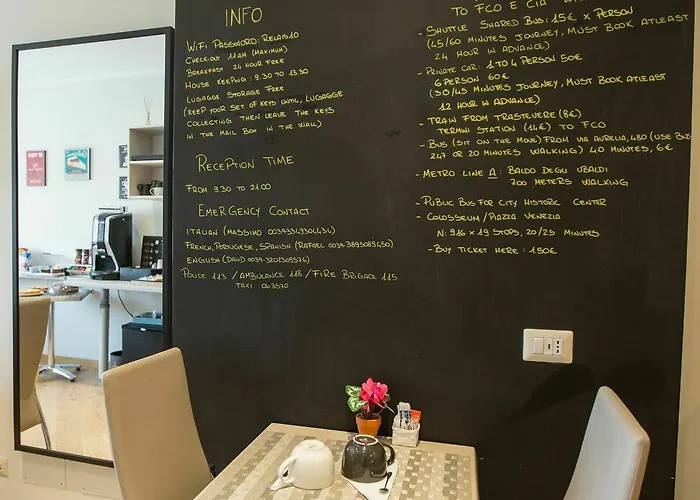 INFO
WiFi PASSWORD: RELAIS10
CHECK-OUT 11AM (MAXIMUM)
BREAKFAST 24 HOUR FREE
HOUSE KEEPING: 9.30 TO 13.30
LUGAGGE STORAGE FREE
(KEEP YOUR SET OF KEYS UNTIL, LUGAGGE
COLLECTING THEN LEAVE THE KEYS
IN THE MAIL BOX IN THE WALL)
RECEPTION TIME
FROM 9.30 TO 21.00
EMERGENCY CONTACT
ITALIAN (MASSIMO 00393493304434)
FRENCH, PORTUGESE, SPANISH (RAFAEL 0039-3895089450)
ENGLISH (DAVID 0039-3201309576)
POLICE 113 / AMBULANCE 118 / FIRE BRIGADE 115
TAXI 063570
TO FCO E CIA
- SHUTTLE SHARED BUS: 15€ x PERSON
(45/60 MINUTES JOURNEY, MUST BOOK ATLEAST
24 HOUR IN ADVANCE)
- PRIVATE CAR: 1 TO 4 PERSON 50€
6 PERSON 60€
(30/45 MINUTES JOURNEY, MUST BOOK ATLEAST
12 HOUR IN ADVANCE)
- TRAIN FROM TRASTEVERE (8€)
TERMINI STATION (14€) TO FCO
- BUS (SIT ON THE MOVE) FROM VIA AURELIA, 480 (USE BUS
247 OR 20 MINUTES WALKING) 40 MINUTES, 6€
- METRO LINE A: BALDO DEGLI UBALDI
700 METERS WALKING
- PUBLIC BUS FOR CITY HISTORIC CENTER
- COLOSSEUM / PIAZZA VENEZIA
N: 916 x 19 STOPS, 20/25 MINUTES
- BUY TICKET HERE: 1.50€